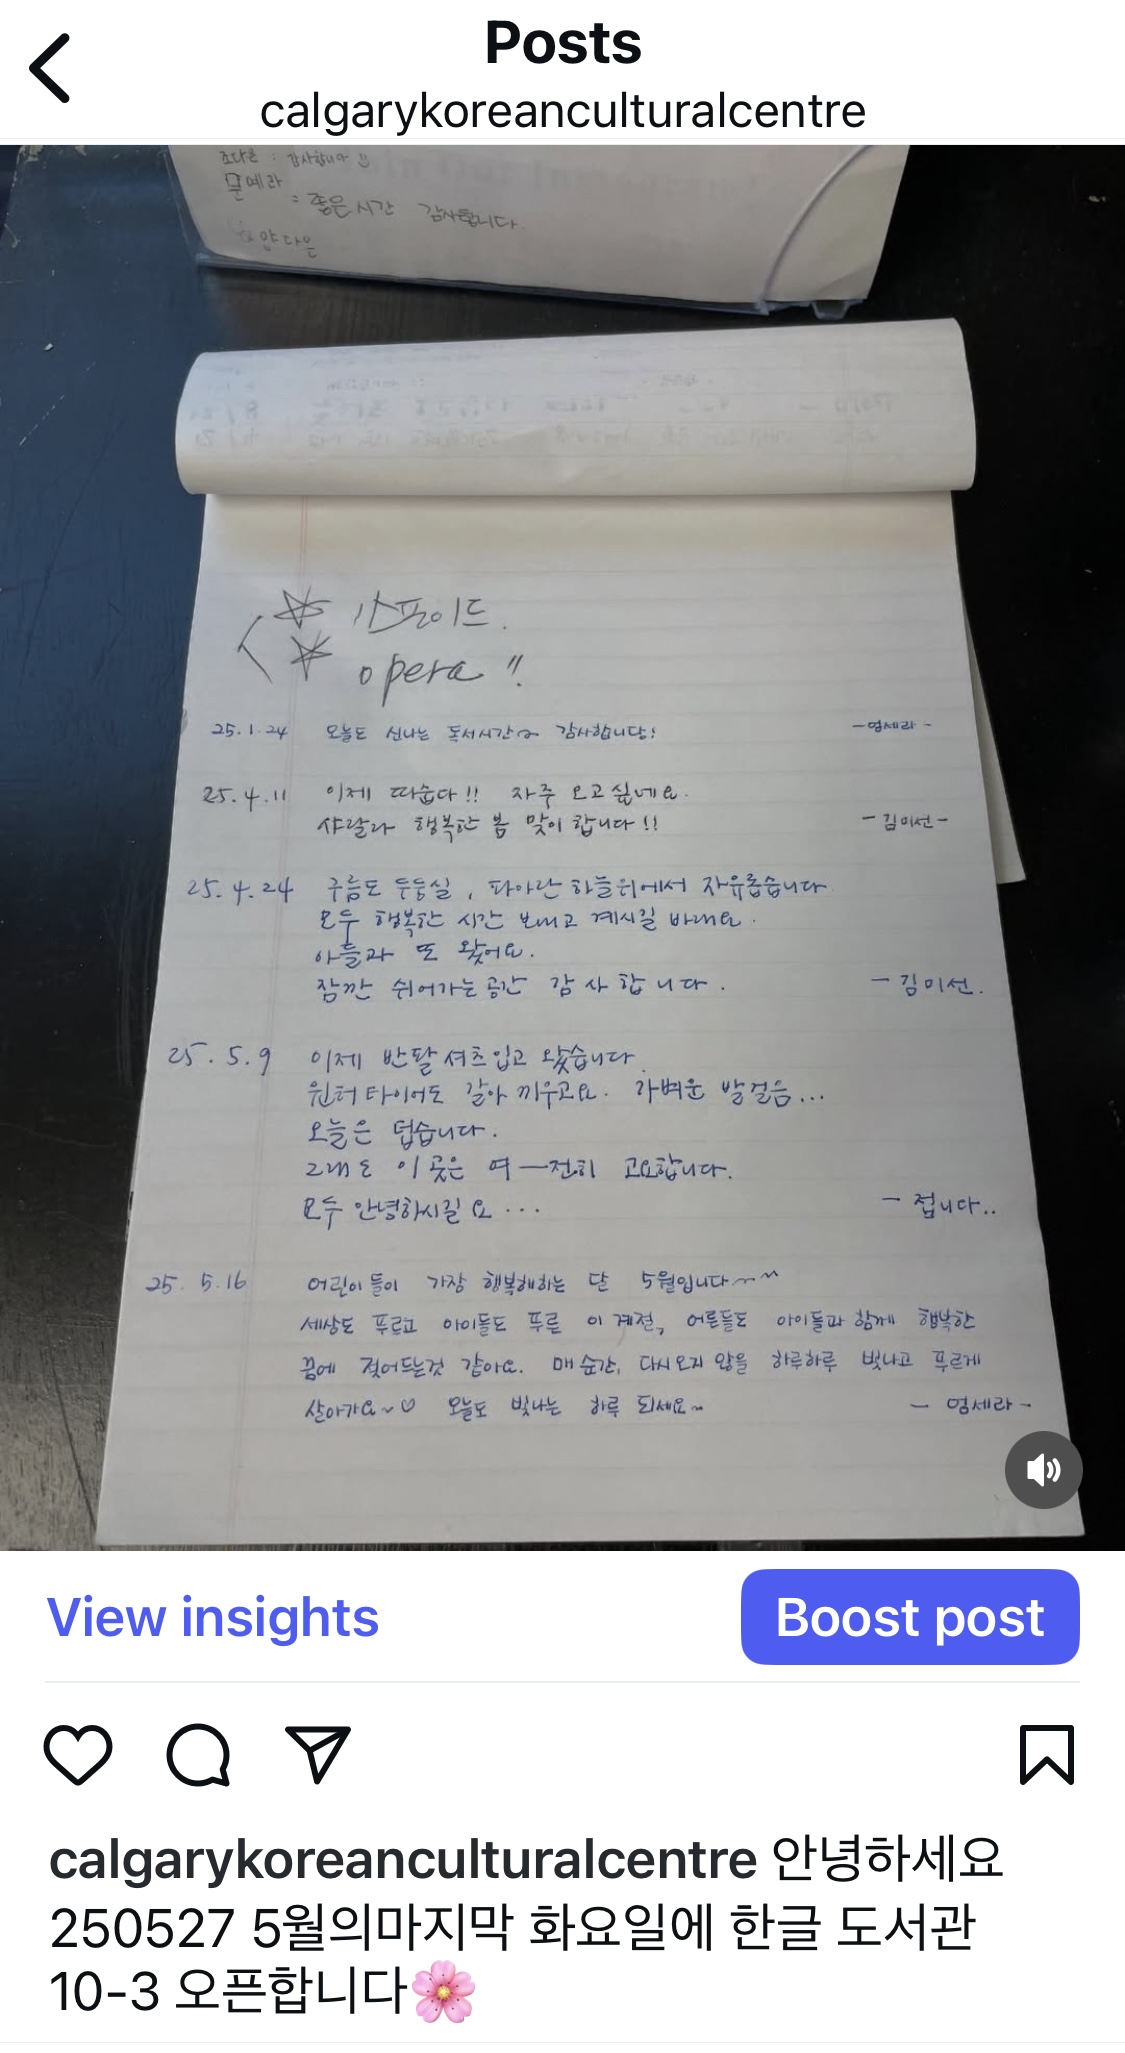 Posts
calgarykoreanculturalcentre
조다은 : 감사합니다
문예라
: 좋은 시간 감사합니다
양다은
스포이드.
opera !!
25.1.24 오늘도 신나는 독서시간~ 감사합니당! -염세라-
25.4.11 이제 따숩다!! 자주 오고 싶네요.
샤랄라 행복한 봄 맞이 합니다!! -김미선-
25.4.24 구름도 두둥실, 파아란 하늘위에서 자유롭습니다
모두 행복한 시간 보내고 계시길 바래요.
아들과 또 왔어요.
잠깐 쉬어가는 공간 감사합니다. -김미선.
25.5.9 이제 반팔 셔츠입고 왔습니다.
윈터타이어도 갈아 끼우고요. 가벼운 발걸음...
오늘은 덥습니다.
그래도 이 곳은 여—전히 고요합니다.
모두 안녕하시길요... - 접니다..
25.5.16 어린이들이 가장 행복해하는 달 5월입니다~~
세상도 푸르고 아이들도 푸른 이 계절, 어른들도 아이들과 함께 행복한
꿈에 젖어드는것 같아요. 매 순간, 다시오지 않을 하루하루 빛나고 푸르게
살아가요~♡ 오늘도 빛나는 하루 되세요~ - 염세라-
View insights
Boost post
calgarykoreanculturalcentre 안녕하세요
250527 5월의마지막 화요일에 한글 도서관
10-3 오픈합니다🌸